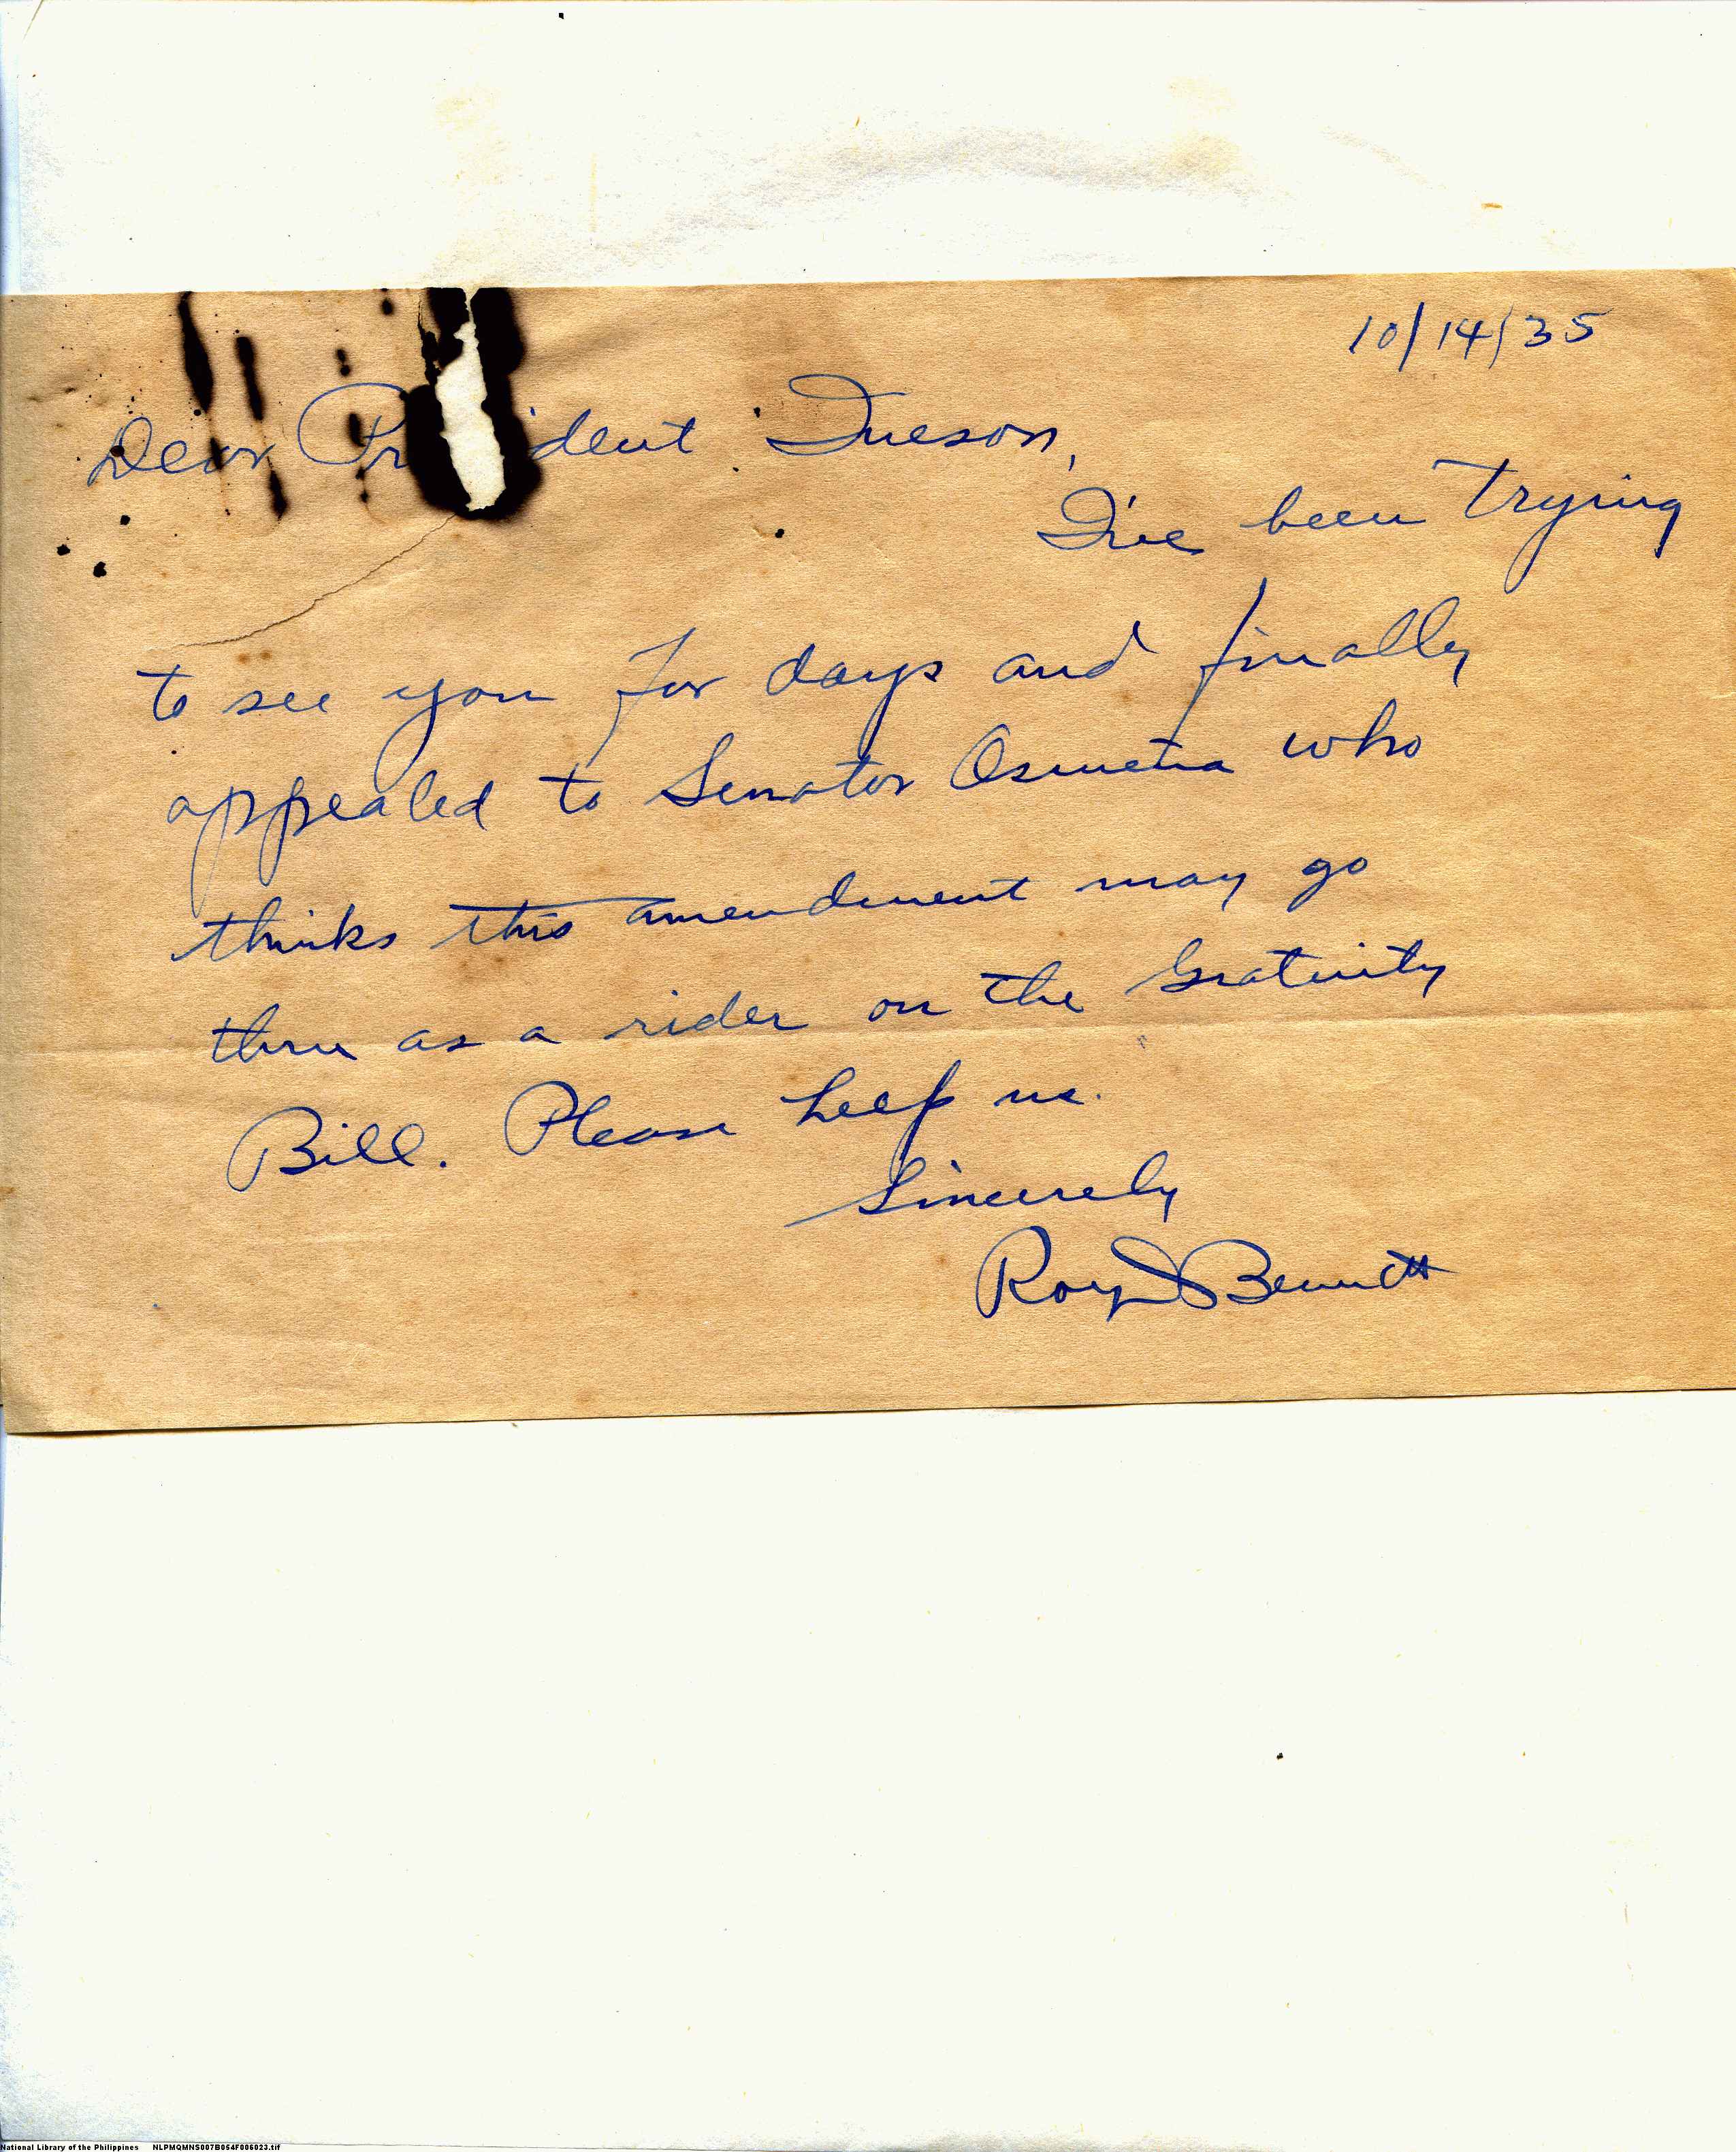 10/14/35
Dear Pr ident Queson,
I've been trying
to see you for days and finally
appealed to Senator Osmeña who
thinks this amendment may go
thru as a rider on the Gratuity
Bill. Please help us.
Sincerely
Roy Bennett
National Library of the Philippines NLPMQMNS007B054F006023.tif